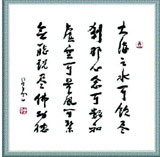 大海之水可飲盡
刹那心念可數知
虛空可量風可繫
無能說盡佛功德